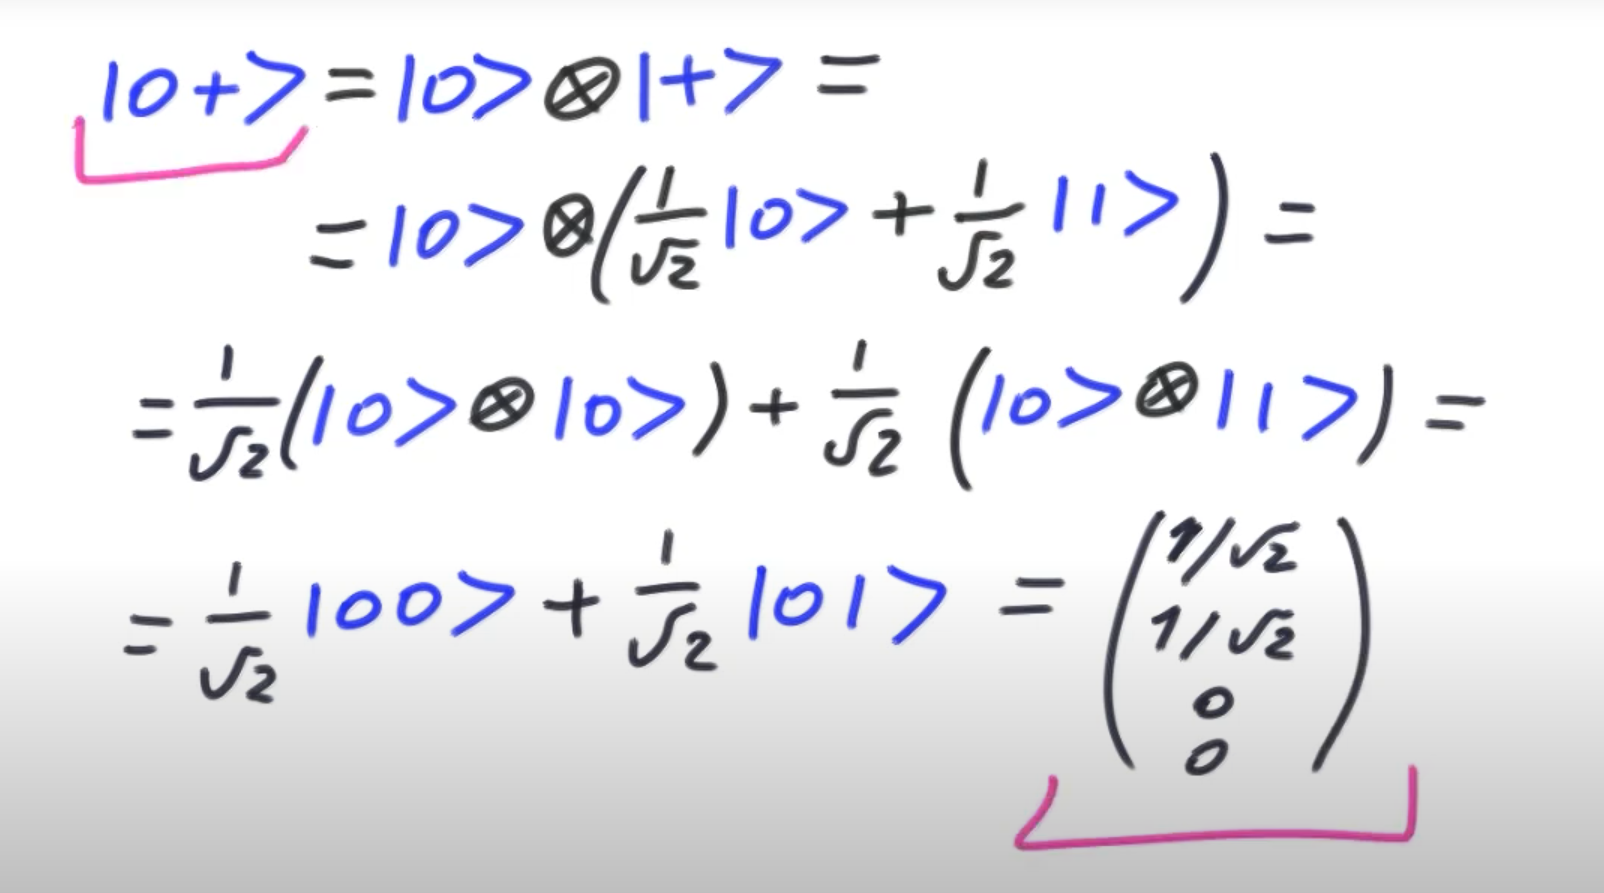 |0+> = |0> ⊗ |+> =
= |0> ⊗ (1/√2 |0> + 1/√2 |1>) =
= 1/√2 (|0> ⊗ |0>) + 1/√2 (|0> ⊗ |1>) =
= 1/√2 |00> + 1/√2 |01> = (1/√2
1/√2
0
0)